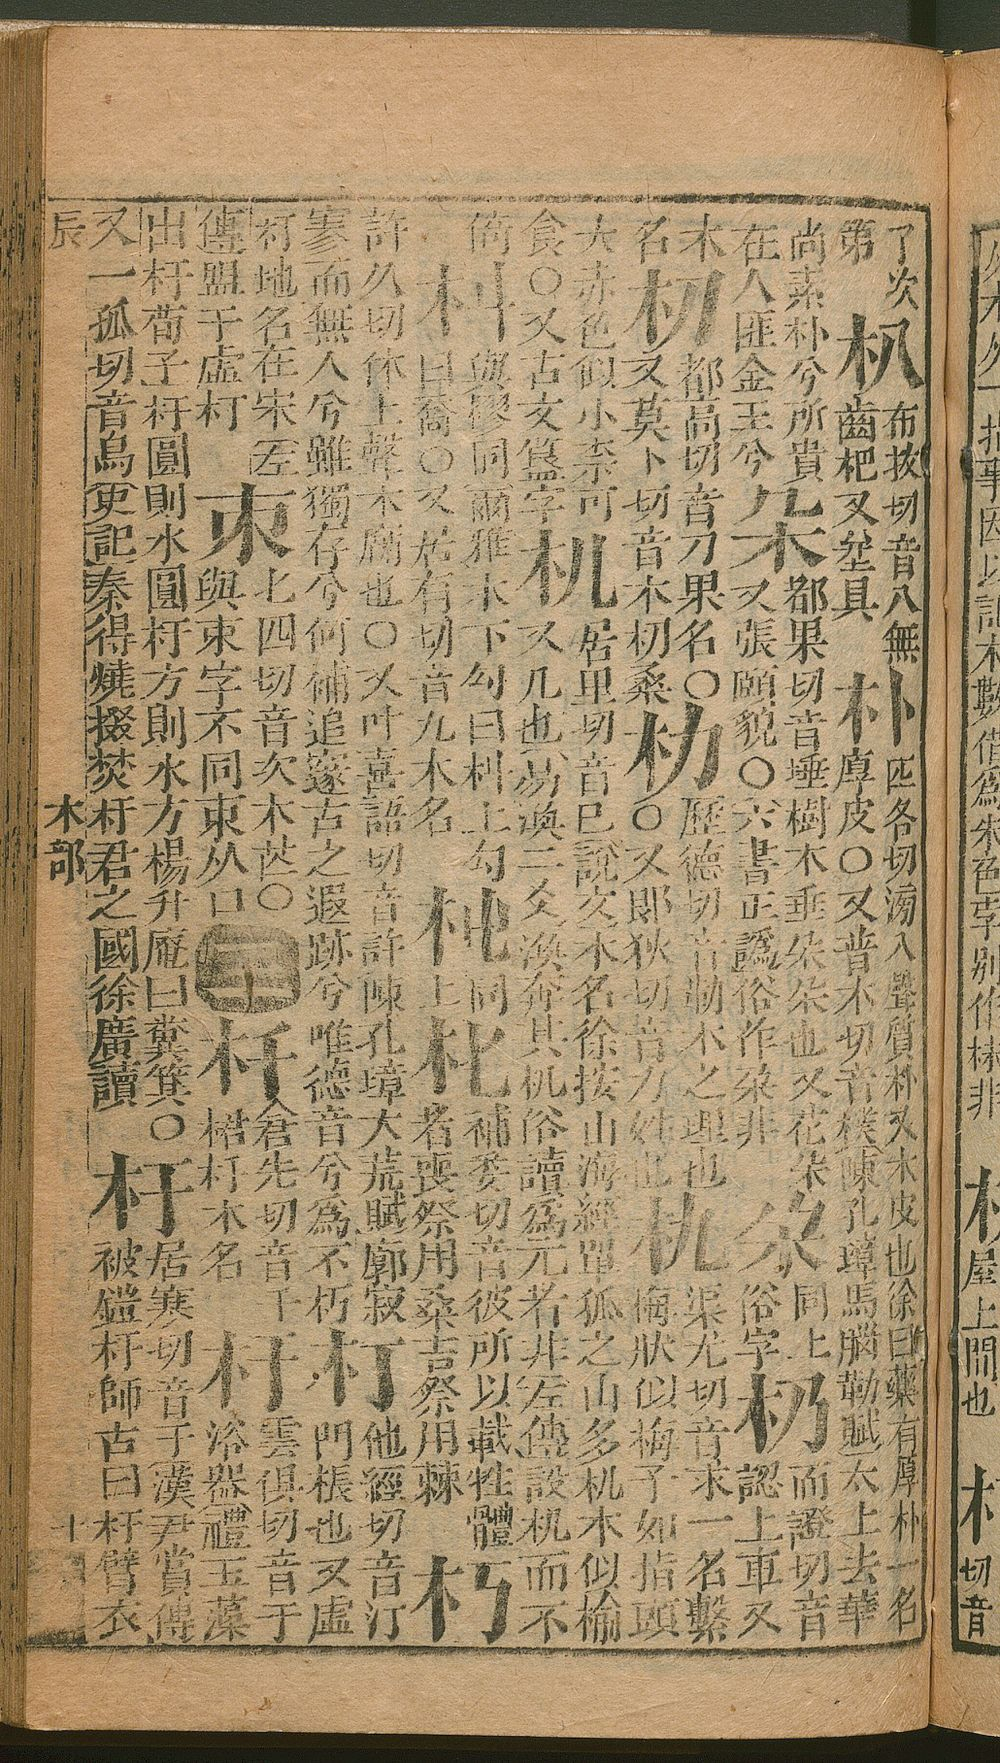 了次
第
朳
布拔切音八無
齒杷又坌具
朴
匹各切滂入聲質朴又木皮也徐曰藥有厚朴一名
厚皮〇又普木切音樸陳孔璋馬腦勒賦太上去華
尚素朴兮所貴
在人匪金玉兮
朵
都果切音埵樹木垂朵朵也又花朵
又張頤貌〇六書正譌俗作朶非
朶
同上
俗字
杒
而證切音
認上車又
木
名
朷
都高切音刀果名〇
又莫卜切音木朷桑
朸
歷德切音勒木之理也
〇又郎狄切音力姓也
朹
渠尤切音求一名檕
梅狀似梅子如指頭
大赤色似小柰可
食〇又古文簋字
机
居里切音已說文木名徐按山海經單狐之山多机木似榆
又几也易渙二爻渙奔其机俗讀爲兀者非左傳設机而不
倚
朻
與樛同爾雅木下勾曰朻上勾
曰喬〇又居有切音九木名
同
上
朼
補委切音彼所以載牲體
者喪祭用桑吉祭用棘
朽
許久切休上聲木腐也〇又叶喜語切音許陳孔璋大荒賦廓寂
寥而無人兮雖獨存兮何補追邃古之遐跡兮唯德音兮爲不朽
朾
他經切音汀
門棖也又虛
朾地名在宋左
傳盟于虛朾
朿
七四切音次木芒〇
與束字不同束从口
三
杄
倉先切音千
杄木名
杅
雲俱切音于
浴器禮玉藻
出杅荀子杅圓則水圓杅方則水方楊升庵曰糞箕〇
又一孤切音烏史記秦得燒掇焚杅君之國徐廣讀
杆
居寒切音干漢尹賞傳
被鎧杆師古曰杆臂衣
辰
木部
十